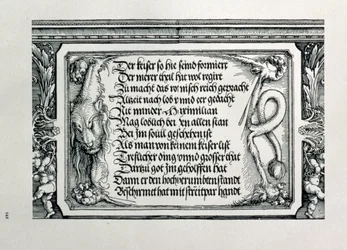 Der keiser so hie seind formiert
Der merer theil hat wol regirt
Zu macht das romisch reich gepracht
Allzeit nach lob vnnd eer gedacht
Nit minder Maximilian
Mag loblich bei den allen stan
Bei jm souil geschehen ist
Als man von keinem keiser list
Versuchter ding vnnd grosser that
Dartzu got jm geholffen hat
Dann er den hochverumbten standt
Beschirmet hat mit streitpar handt